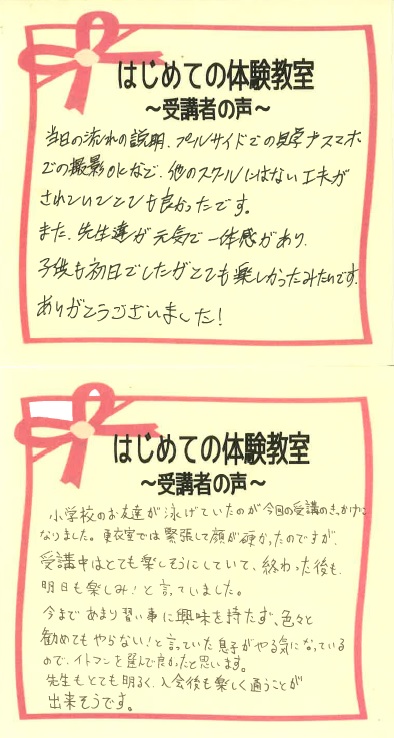 はじめての体験教室
～受講者の声～
当日の流れの説明、プールサイドでの見学やスマホ
での撮影OKなど、他のスクールにはない工夫が
されていてとても良かったです。
また、先生達が元気で一体感があり、
子供も初日でしたがとても楽しかったみたいです。
ありがとうございました!
はじめての体験教室
～受講者の声～
小学校のお友達が泳げていたのが今回の受講のきっかけに
なりました。更衣室では緊張して顔が硬かったのですが、
受講中はとても楽しそうにしていて、終わった後も、
明日も楽しみ!と言っていました。
今まであまり習い事に興味を持たず、色々と
勧めてもやらない!と言っていた息子がやる気になっている
ので、イトマンを選んで良かったと思います。
先生もとても明るく、入会後も楽しく通うことが
出来そうです。